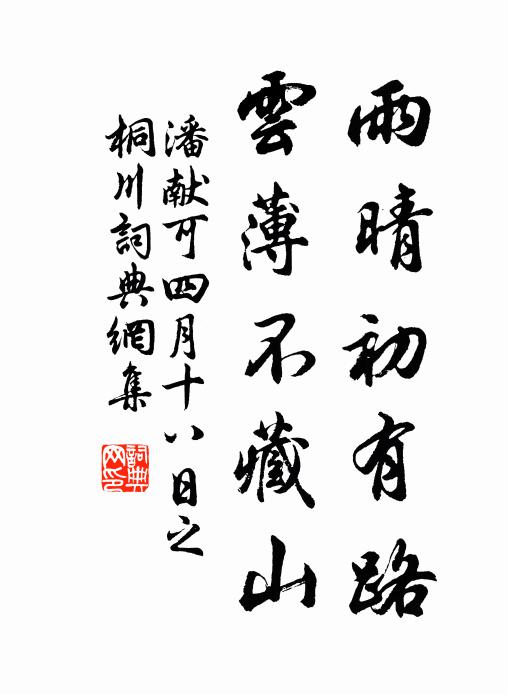 雨晴初有路
雲薄不藏山
潘献可四月十八日之
桐川詞典網集
詞典网印